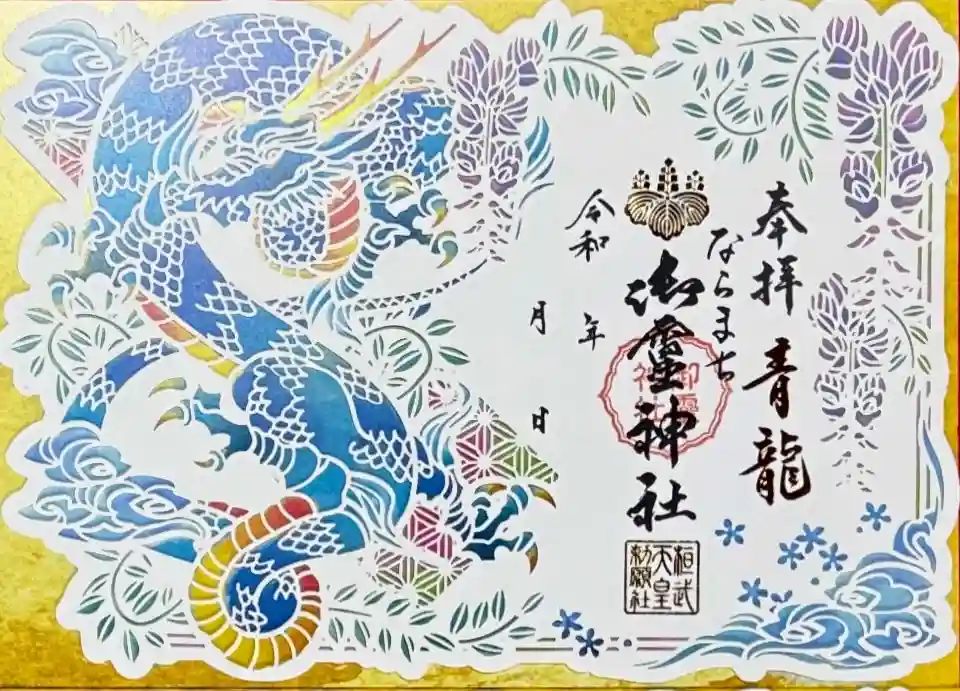 奉拝 青龍
ならまち
御霊神社
御霊
神社
桓武
天皇
勅願社
令和 年
月 日